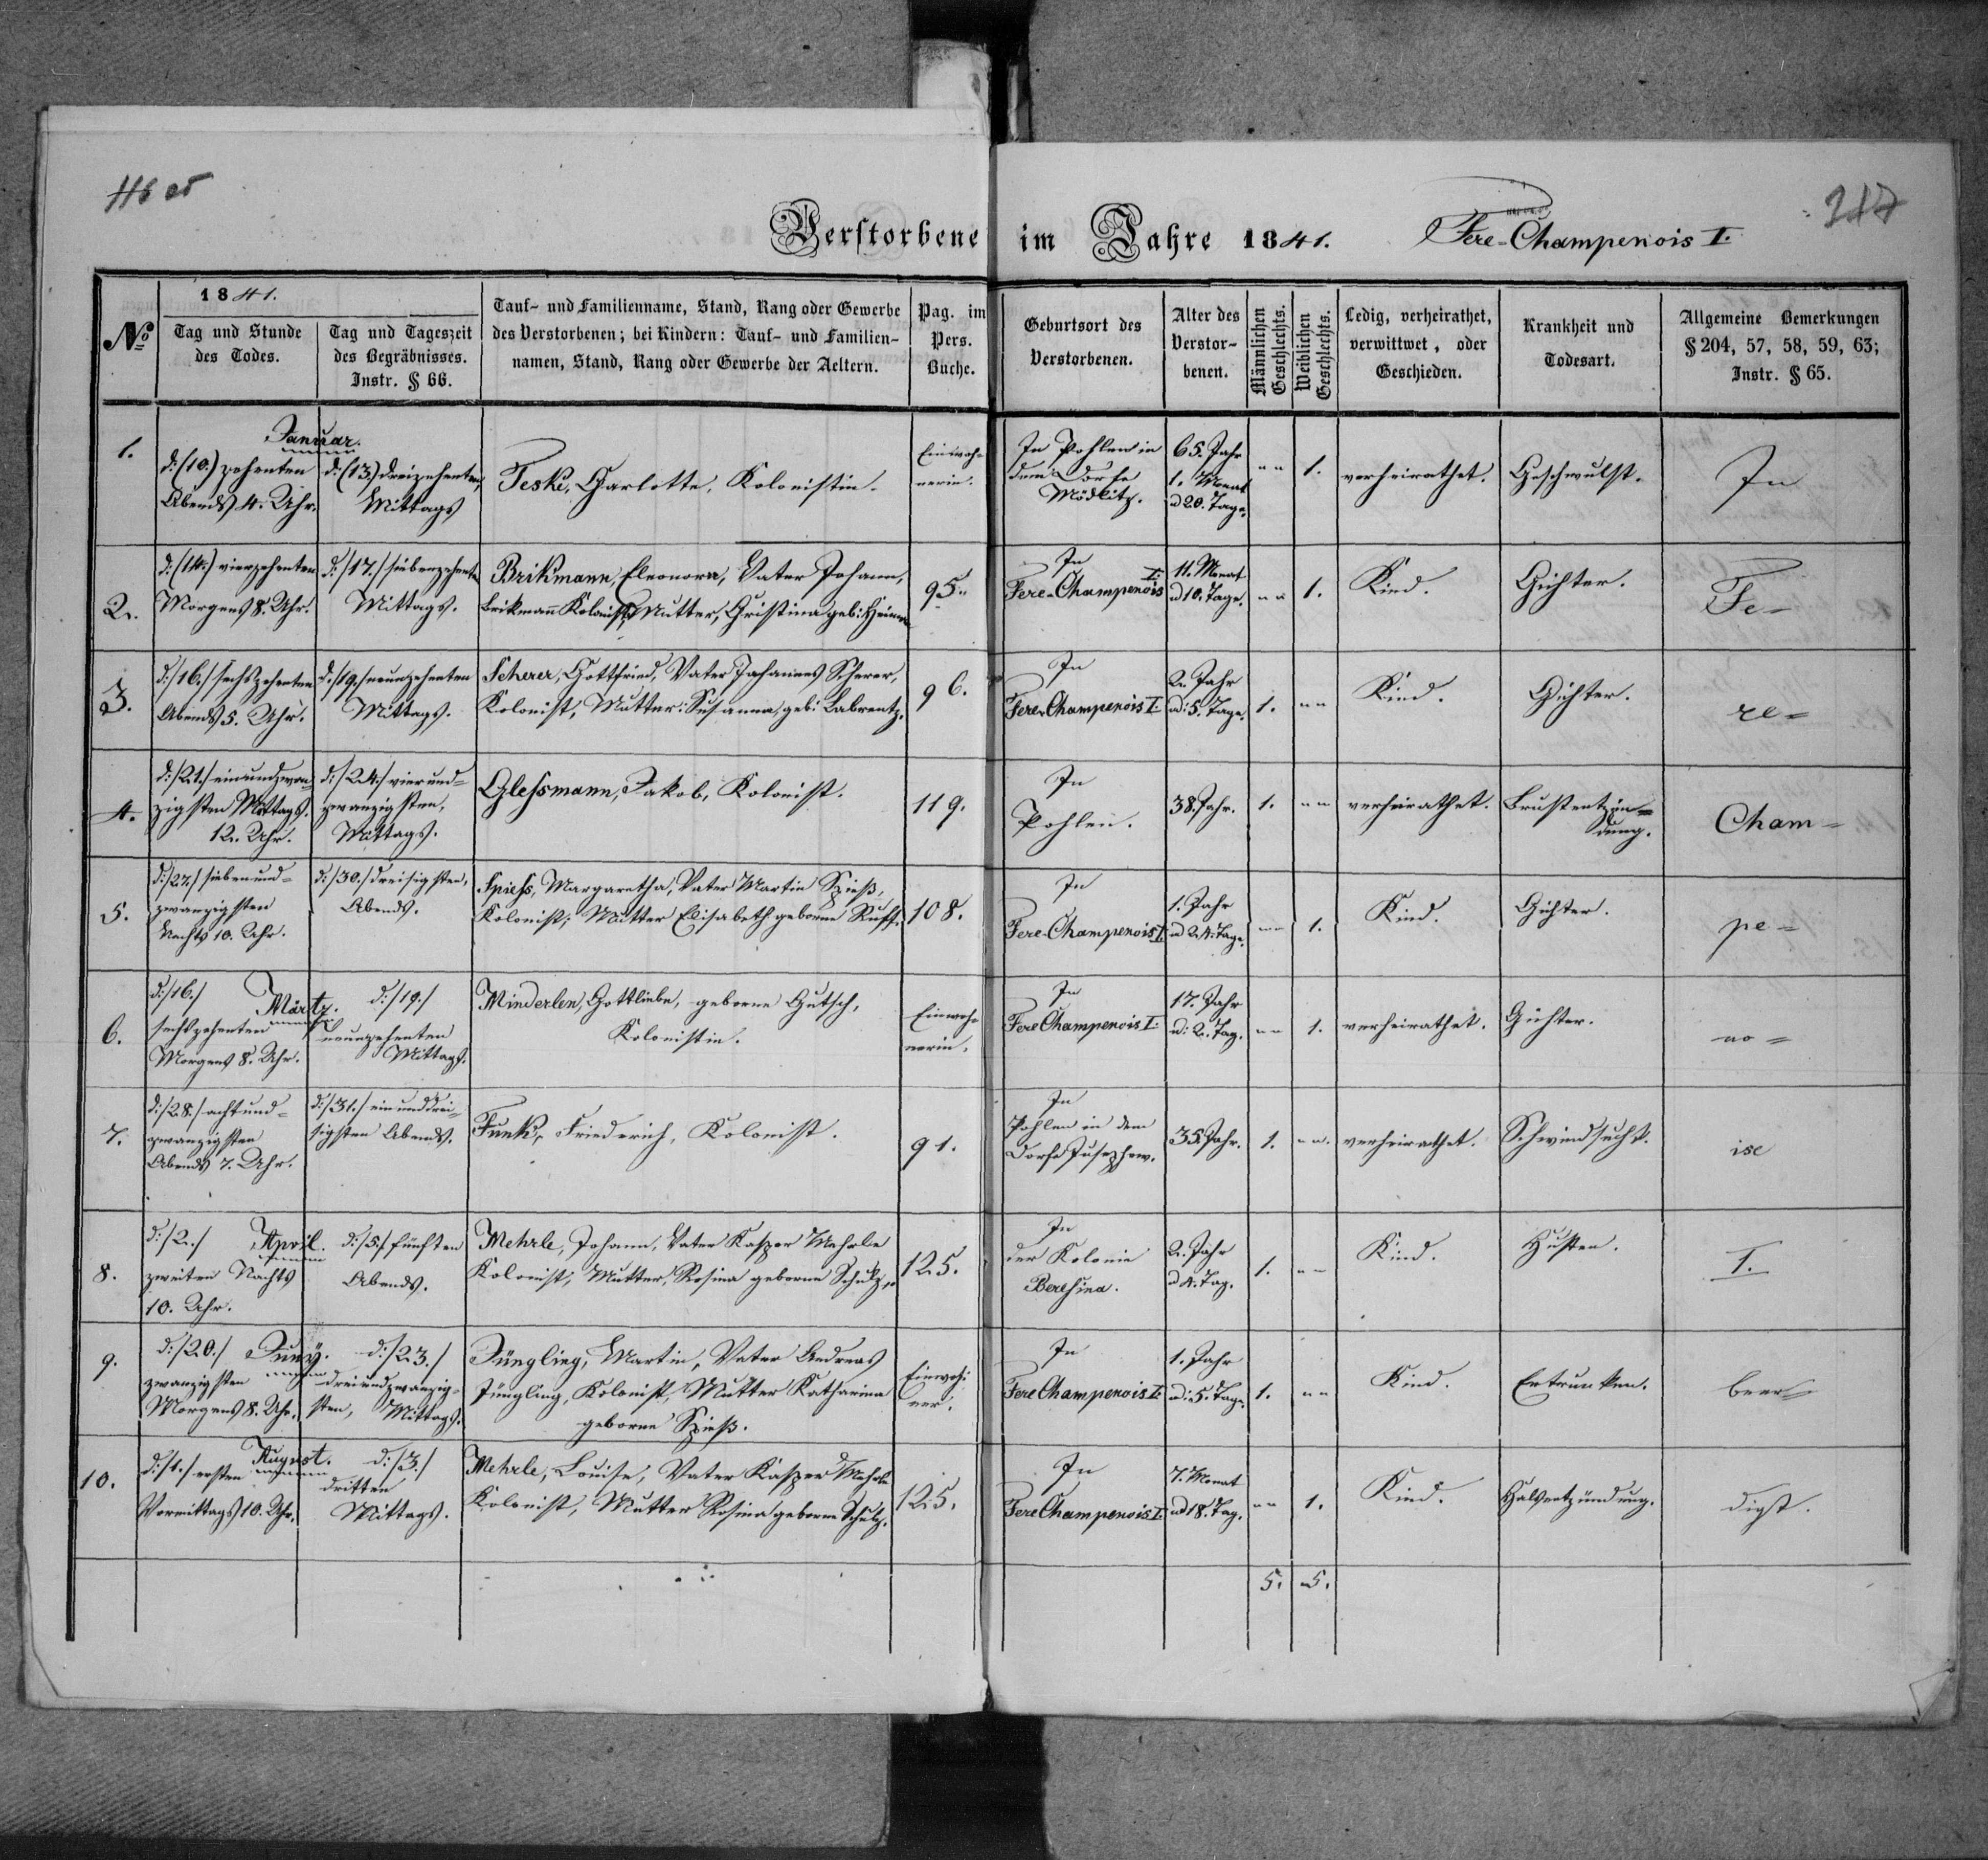 Verstorbene im Jahre 1841. Fere-Champenois I.
217
1841.
№
Tag und Stunde
des Todes.
Tag und Tageszeit
des Begräbnisses.
Instr. § 66.
Tauf- und Familienname, Stand, Rang oder Gewerbe
des Verstorbenen; bei Kindern: Tauf- und Familien-
namen, Stand, Rang oder Gewerbe der Aeltern.
Pag. im
Pers.
Buche.
Geburtsort des
Verstorbenen.
Alter des
Verstor-
benen.
Männlichen
Geschlechts.
Weiblichen
Geschlechts.
Ledig, verheirathet,
verwittwet, oder
Geschieden.
Krankheit und
Todesart.
Allgemeine Bemerkungen
§ 204, 57, 58, 59, 63;
Instr. § 65.
1.
Januar.
d: (10.) zehenten
Abends 4. Uhr.
d: (13.) dreizehenten,
Mittags
Teske, Charlotte, Kolonistin.
Einwoh-
nerin.
In Pohlen in
dem Dorfe
Mödkitz.
65. Jahr
1. Monat
u 20. Tage.
1.
verheirathet.
Geschwulst.
In
2.
d: (14.) vierzehenten
Morgens 8. Uhr.
d: (17.) siebenzehenten
Mittags.
Brikmann, Eleonora, Vater Johann,
Brikmann Kolonist, Mutter, Christina geb:
95.
In
Fere-Champenois I.
11. Monat
u 10. Tage.
1.
Kind.
Gichter.
Fe-
3.
d: (16.) sechszehenten
Abends 5. Uhr.
d: (19.) neunzehenten
Mittags.
Scherer, Gottfried, Vater Johannes Scherer,
Kolonist, Mutter: Susanna, geb: Labrentz.
96.
In
Fere-Champenois I.
2. Jahr
u: 5. Tage.
1.
Kind.
Gichter.
re-
4.
d: (21.) einundzwan-
zigsten Mittags.
12. Uhr.
d: (24.) vierund-
zwanzigsten,
Mittags.
Glessmann, Jakob, Kolonist.
119.
In
Pohlen.
38. Jahr.
1.
verheirathet.
Brustentzün-
dung.
Cham-
5.
d: (27.) siebenund-
zwanzigsten
Nachts 10. Uhr.
d: (30.) dreisigsten,
Abends.
Spiess, Margaretha, Vater Martin Spieß,
Kolonist, Mutter Elisabeth geborne Ruff.
108.
In
Fere-Champenois I.
1. Jahr
u 24. Tage.
1.
Kind.
Gichter.
pe-
6.
Märtz.
d: (16.)
sechszehenten
Morgens 8. Uhr.
d: (19.)
neunzehenten
Mittags.
Minderlen, Gottliebe, geborne Gutsch,
Kolonistin.
Einwoh-
nerin.
In
Fere Champenois I.
17. Jahr
u: 2. Tag.
1.
verheirathet.
Gichter.
no-
7.
d: (28.) achtund-
zwanzigsten
Abends 7. Uhr.
d: (31.) einunddrei-
sigsten Abends.
Funk, Friederich, Kolonist.
91.
In
Pohlen in dem
Dorfe Jusezhow.
35. Jahr.
1.
verheirathet.
Schwindsucht.
ise
8.
April.
d: (2.)
zweiten Nachts
10. Uhr.
d: (5.) fünften
Abends.
Mehrle, Johann, Vater Kasper Mehrle
Kolonist, Mutter, Rosina geborne Schulz.
125.
In
der Kolonie
Beresina.
2. Jahr
u 4. Tag.
1.
Kind.
Husten.
I.
9.
Juny.
d: (20.)
zwanzigsten
Morgens 8. Uhr.
d: (23.)
dreiundzwanzig-
sten, Mittags.
Jüngling, Martin, Vater Andreas
Jüngling, Kolonist, Mutter Katharina
geborne Spieß.
Einwoh-
ner.
In
Fere Champenois I.
1. Jahr
u: 5. Tage.
1.
Kind.
Ertrunken.
beer-
10.
August.
d: (1.) ersten
Vormittags 10. Uhr.
d: (3.)
dritten
Mittags.
Mehrle, Louise, Vater Kasper Mehrle
Kolonist, Mutter Rosina geborne Schulz.
125.
In
Fere Champenois I.
7. Monat
u 18. Tag.
1.
Kind.
Halsentzündung.
digt.
5. 5.